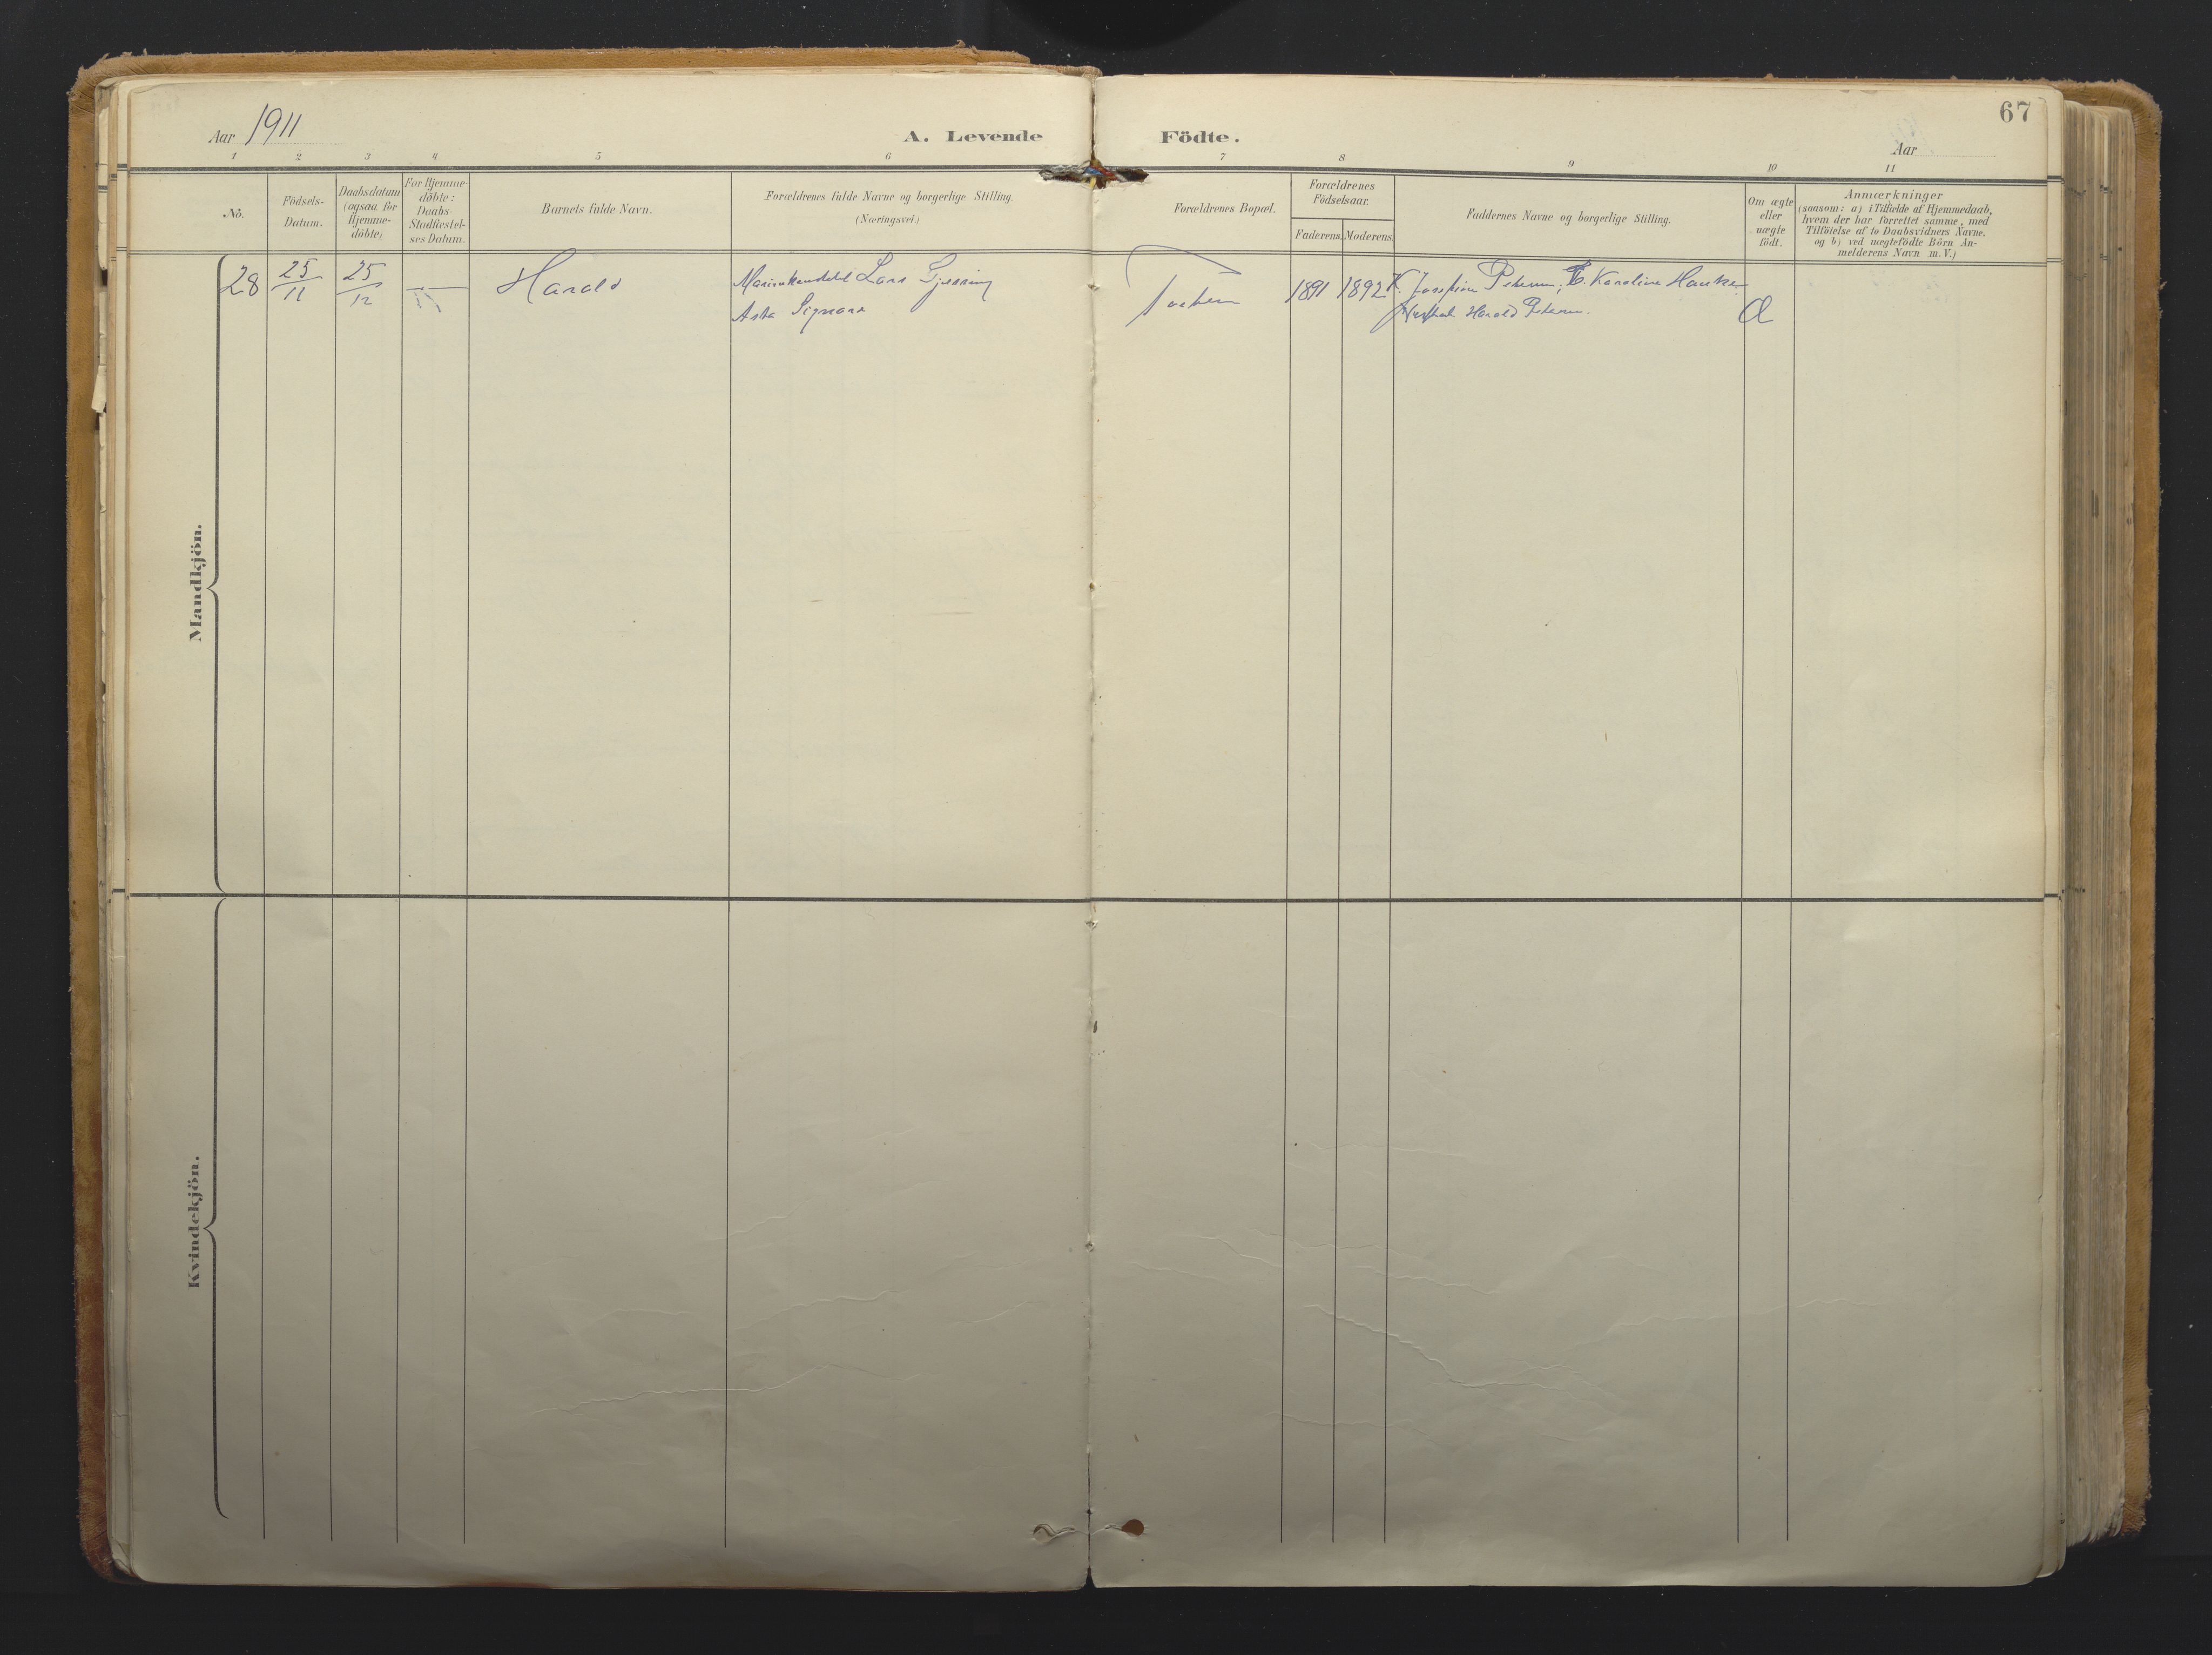 67
Aar 1911
A. Levende Födte.
Aar
1 2 3 4 5 6 7 8 9 10 11
No.
Födsels-
Datum.
Daabsdatum
(ogsaa for
Hjemme-
döbte)
For Hjemme-
döbte:
Daabs-
Stadfæstel-
ses Datum.
Barnets fulde Navn.
Forældrenes fulde Navne og borgerlige Stilling.
(Næringsvei.)
Forældrenes Bopæl.
Forældrenes
Födselsaar.
Faderens. Moderens.
Faddernes Navne og borgerlige Stilling.
Om ægte
eller
uægte
födt.
Anmærkninger
(saasom: a) i Tilfælde af Hjemmedaab,
hvem der har forrettet samme, med
Tilföielse af to Daabsvidners Navne.
og b) ved uægtefödte Börn An-
melderens Navn m. V.)
Mandkjön.
28 25/11 25/12 — Harald Lars Gjessing 1891 1892 K. Petersen, Karoline
Asta Harald Petersen
Kvindekjön.